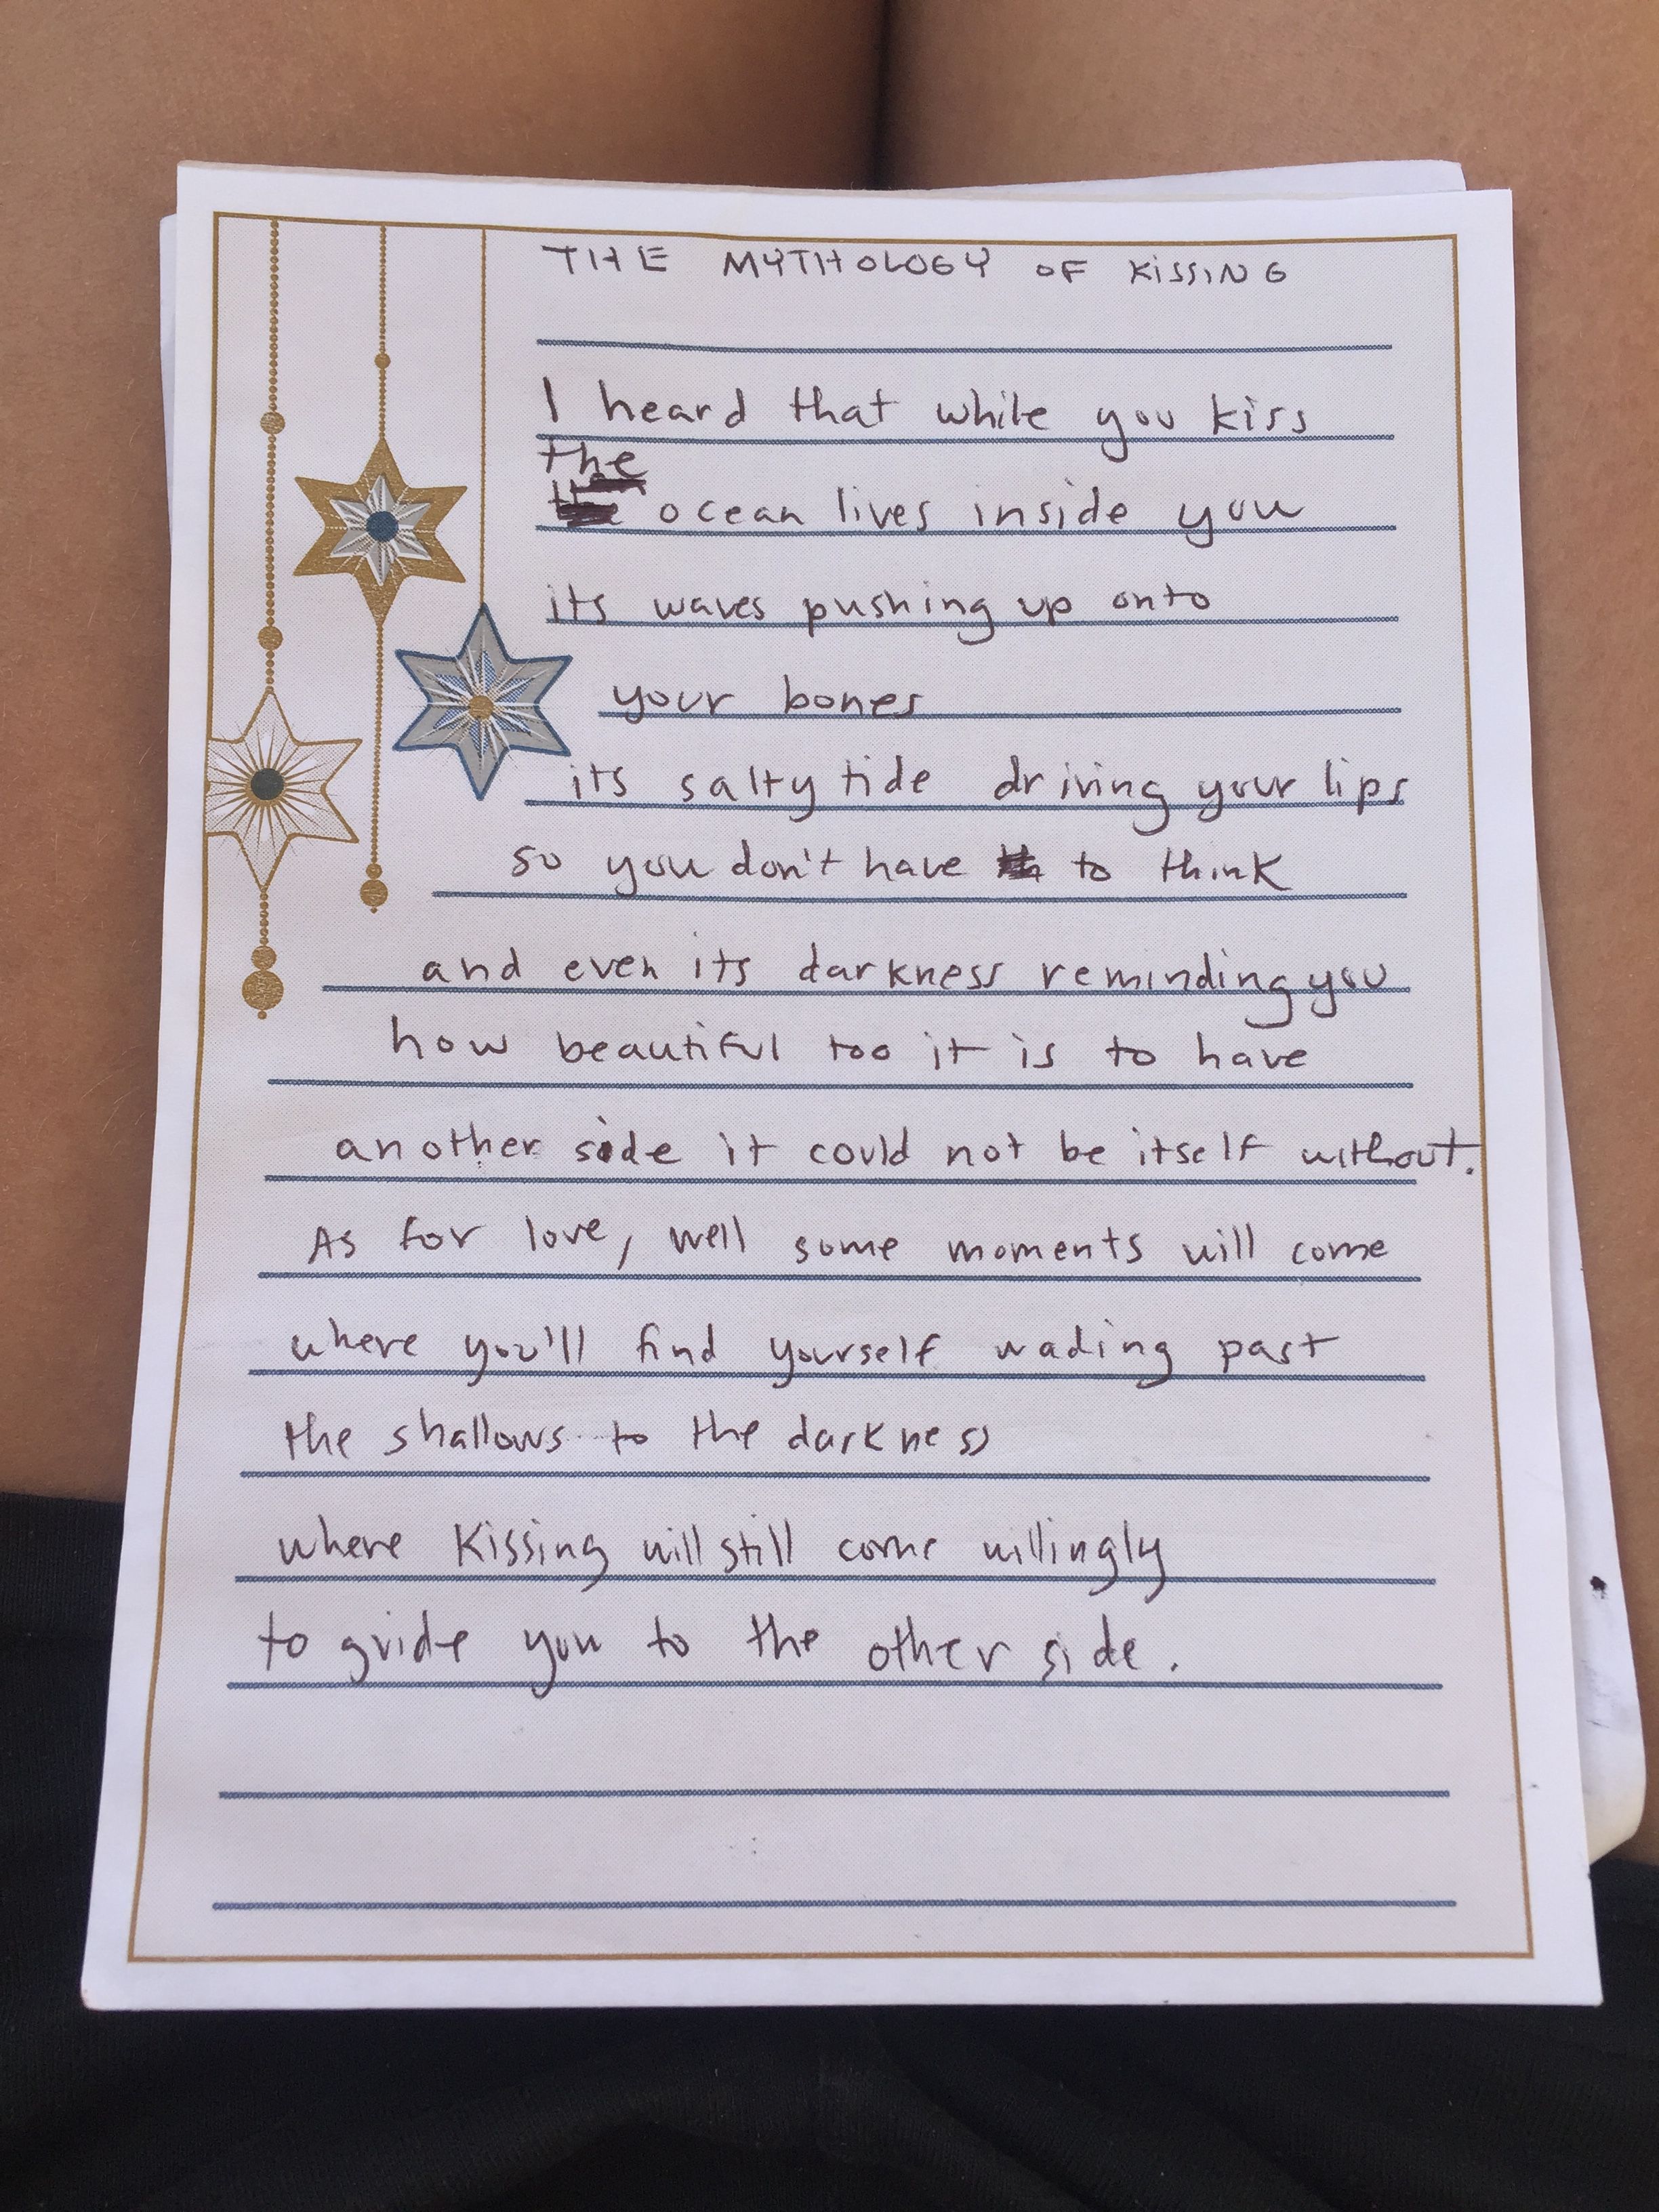 THE MYTHOLOGY OF KISSING
I heard that while you kiss
the
ocean lives inside you
its waves pushing up onto
your bones
its salty tide driving your lips
so you don't have to think
and even its darkness reminding you
how beautiful too it is to have
another side it could not be itself without.
As for love, well some moments will come
where you'll find yourself wading past
the shallows to the darkness
where kissing will still come willingly
to guide you to the other side.